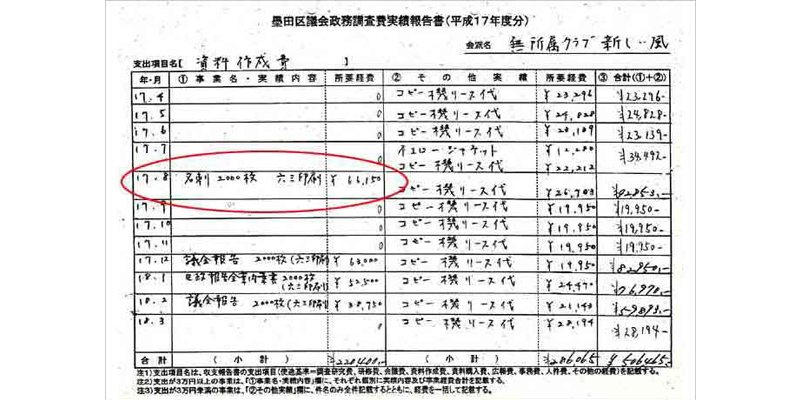 墨田区議会政務調査費実績報告書(平成17年度分)
会派名 無所属クラブ 新しい風
支出項目名【 資料作成費 】
年・月 ① 事業名・実績内容 所要経費 ② その他実績 所要経費 ③ 合計(①+②)
17.4 0 コピー機リース代 ¥23,296 ¥23,296-
17.5 0 コピー機リース代 ¥24,828 ¥24,828-
17.6 0 コピー機リース代 ¥23,139-
17.7 イエロージャケット ¥12,280
コピー機リース代 ¥22,212 ¥34,492-
17.8 名刺 2000枚 六三印刷 ¥66,150
コピー機リース代 ¥26,703
17.9 0 コピー機リース代 ¥19,950 ¥19,950-
17.10 0 コピー機リース代 ¥19,950 ¥19,950-
17.11 0 コピー機リース代 ¥19,950 ¥19,950-
17.12 議会報告 2000枚(六三印刷) ¥63,000 コピー機リース代 ¥19,950 ¥82,950-
18.1 区政報告会案内葉書 2000枚
(六三印刷) ¥52,500 コピー機リース代 ¥24,470 ¥76,970-
18.2 議会報告 2000枚(六三印刷) ¥38,750 コピー機リース代 ¥21,143 ¥59,893-
18.3 0 コピー機リース代 ¥28,194 ¥28,194-
合計 (小計) ¥220,400- (小計) ¥286,065 ¥506,465-
注1)支出項目名は、収支報告書の支出項目(使途基準=調査研究費、研修費、会議費、資料作成費、資料購入費、広報費、事務費、人件費、その他の経費)を記載する。
注2)支出が3万円以上の事業は、「①事業名・実績内容」欄に、それぞれ個別に実績内容及び事業経費合計を記載する。
注3)支出が3万円未満の事業は、「②その他実績」欄に、件名のみ全件記載するとともに、経費を一括して記載する。